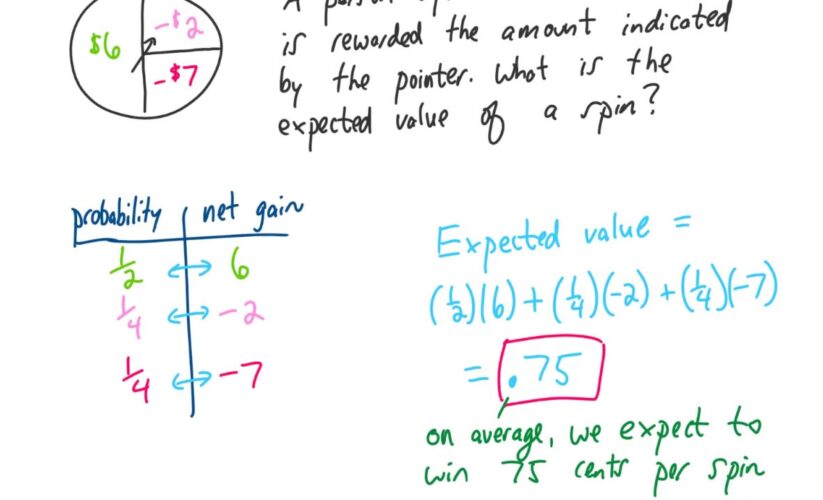 -$2
$6
-$7
A
is rewarded the amount indicated
by the pointer. What is the
expected value of a spin?
probability net gain
1/2 ↔ 6
1/4 ↔ -2
1/4 ↔ -7
Expected value =
(1/2)(6) + (1/4)(-2) + (1/4)(-7)
= .75
on average, we expect to
win 75 cents per spin